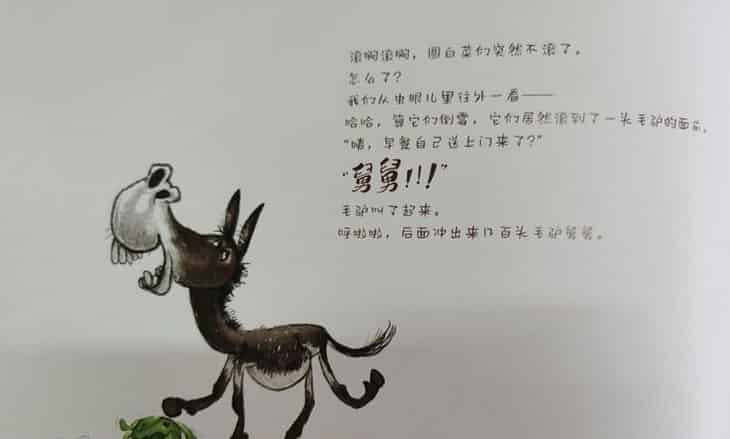 滚啊滚啊，圆白菜们突然不滚了。
怎么了？
我们从虫眼儿里往外一看——
哈哈，算它们倒霉，它们居然滚到了一头毛驴的面前。
“嘻，早餐自己送上门来了？”
“舅舅!!!”
毛驴叫了起来。
呼啦啦，后面冲出来几百头毛驴舅舅。